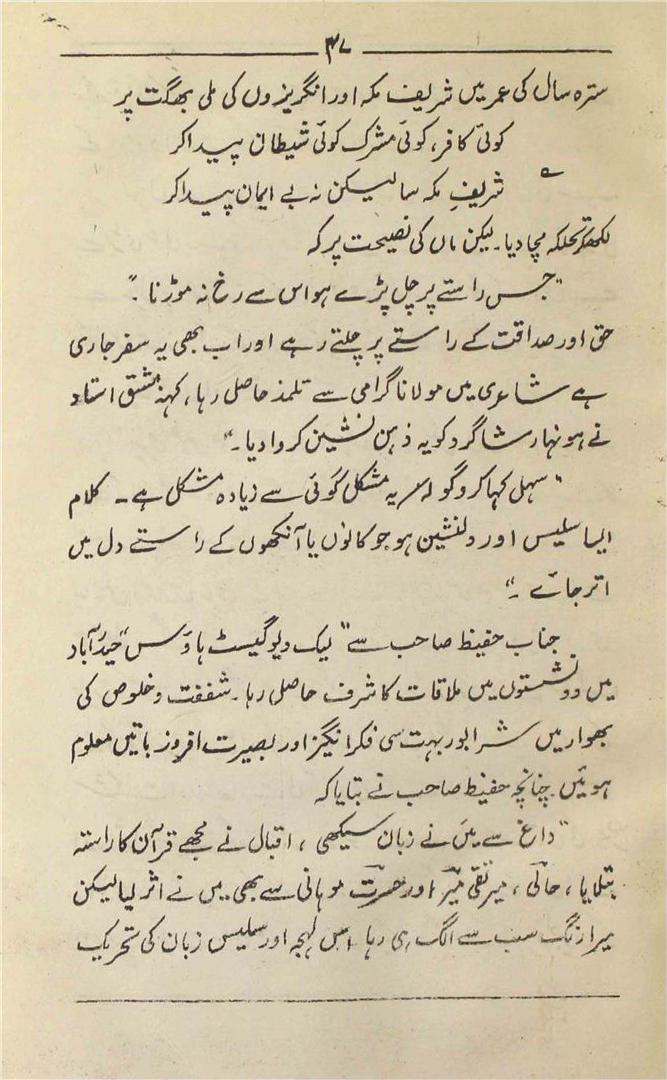 ۳۷
سترہ سال کی عمر میں شریف مکہ اور انگریزوں کی ملی بھگت پر
کوئی کافر، کوئی مشرک کوئی شیطان پیدا کر
شریفِ مکہ سا لیکن نہ بے ایمان پیدا کر
لکھکر تہلکہ مچا دیا۔ لیکن ماں کی نصیحت پر کہ
"جس راستے پر چل پڑے ہو اس سے رخ نہ موڑنا۔"
حق اور صداقت کے راستے پر چلتے رہے اور اب بھی یہ سفر جاری
ہے شاعری میں مولانا گرامی سے تلمذ حاصل رہا، کہنہ مشق استاد
نے ہونہار شاگرد کو یہ ذہن نشین کروا دیا۔"
"سہل کہا کرو گو یہ مشکل گوئی سے زیادہ مشکل ہے۔ کلام
ایسا سلیس اور دلنشین ہو جو کانوں یا آنکھوں کے راستے دل میں
اتر جائے۔"
جناب حفیظ صاحب سے "لیک ویو گیسٹ ہاؤس" حیدرآباد
میں دو نشستوں میں ملاقات کا شرف حاصل رہا۔ شفقت و خلوص کی
پھوار میں شرابور بہت سی فکر انگیز اور بصیرت افروز باتیں معلوم
ہوئیں چنانچہ حفیظ صاحب نے بتایا کہ
"داغ سے میں نے زبان سیکھی، اقبال نے مجھے قرآن کا راستہ
بتلایا، حالی، میر تقی میر اور حسرت موہانی سے بھی میں نے اثر لیا لیکن
میرا رنگ سب سے الگ ہی رہا اس لہجہ اور سلیس زبان کی تحریک